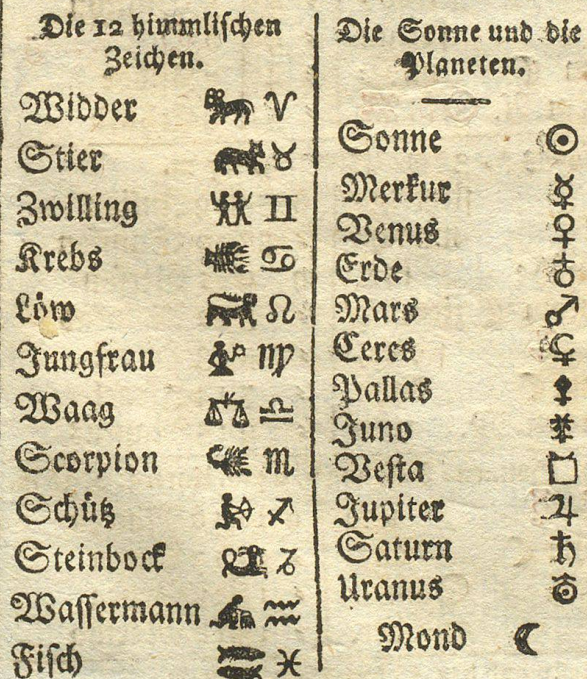 Die 12 himmlischen
Zeichen.
Widder ♈
Stier ♉
Zwilling ♊
Krebs ♋
Löw ♌
Jungfrau ♍
Waag ♎
Scorpion ♏
Schütz ♐
Steinbock ♑
Wassermann ♒
Fisch ♓
Die Sonne und die
Planeten.
Sonne ☉
Merkur ☿
Venus ♀
Erde ♁
Mars ♂
Ceres ⚳
Pallas ⚴
Juno ⚵
Vesta ⚶
Jupiter ♃
Saturn ♄
Uranus ⛢
Mond ☾